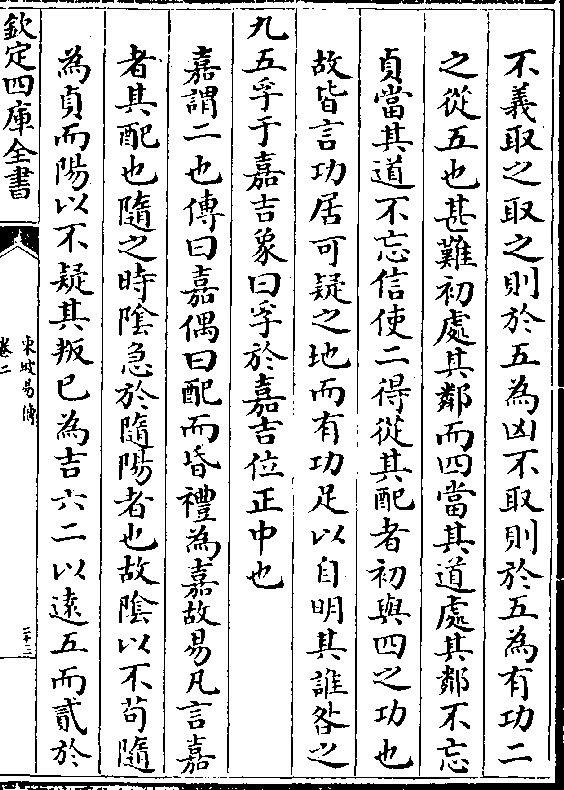 不義取之取之則於五為凶不取則於五為有功二
之從五也甚難初處其鄰而四當其道處其鄰不忘
貞當其道不忘信使二得從其配者初與四之功也
故皆言功居可疑之地而有功足以自明其誰咎之
九五孚于嘉吉象曰孚於嘉吉位正中也
嘉謂二也傳曰嘉偶曰配而昏禮為嘉故易凡言嘉
者其配也隨之時陰急於隨陽者也故陰以不苟隨
為貞而陽以不疑其叛已為吉六二以遠五而貳於
欽定四庫全書
東坡易傳
卷二
二十三